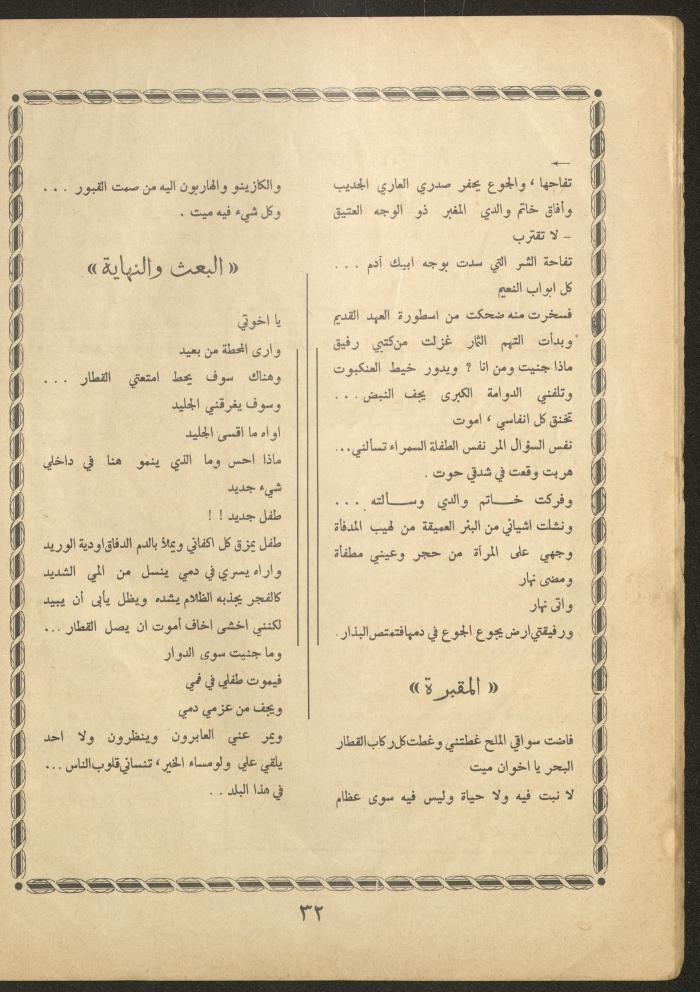 تفاحها ، والجوع يحفر صدري العاري الجديب
وأفاق خاتم والدي المغبر ذو الوجه العتيق
– لا تقترب
تفاحة الشر التي سدت بوجه ابيك آدم . . .
كل ابواب النعيم
فسخرت منه ضحكت من اسطورة العهد القديم
وبدأت التهم الثمار غزلت من كتبي رفيق
ماذا جنيت ومن انا ? ويدور خيط العنكبوت
وتلفني الدوامة الكبرى يجف النبض . . .
تخنق كل انفاسي ، اموت
نفس السؤال المر نفس الطفلة السمراء تسألني . . .
هربت وقعت في شدقي حوت .
وفركت خاتم والدي وسألته . . .
ونشلت اشيائي من البئر العميقة من لهيب المدفأة
وجهي على المرآة من حجر وعيني مطفأة
ومضى نهار
واتى نهار
ورفيقتي ارض يجوع الجوع في دمها فتمتص البذار .
« المقبرة »
فاضت سواقي الملح غطتني وغطت كل ركاب القطار
البحر يا اخوان ميت
لا نبت فيه ولا حياة وليس فيه سوى عظام
والكازينو والهاربون اليه من صمت القبور . . .
وكل شيء فيه ميت .
« البعث والنهاية »
يا اخوتي
وارى المحطة من بعيد
وهناك سوف يحط امتعتي القطار . . .
وسوف يغرقني الجليد
اواه ما اقسى الجليد
ماذا احس وما الذي ينمو هنا في داخلي
شيء جديد
طفل جديد ! !
طفل يمزق كل اكفاني ويملأ بالدم الدفاق اودية الوريد
واراه يسري في دمي ينسل من المي الشديد
كالفجر يجذبه الظلام يشده ويظل يأبى أن يبيد
لكنني اخشى اخاف أموت ان يصل القطار . . .
وما جنيت سوى الدوار
فيموت طفلي في فمي
ويجف من عزمي دمي
ويمر عني العابرون وينظرون ولا احد
يلقي علي ولو مساء الخير ، تنساني قلوب الناس . . .
في هذا البلد . .
٣٢